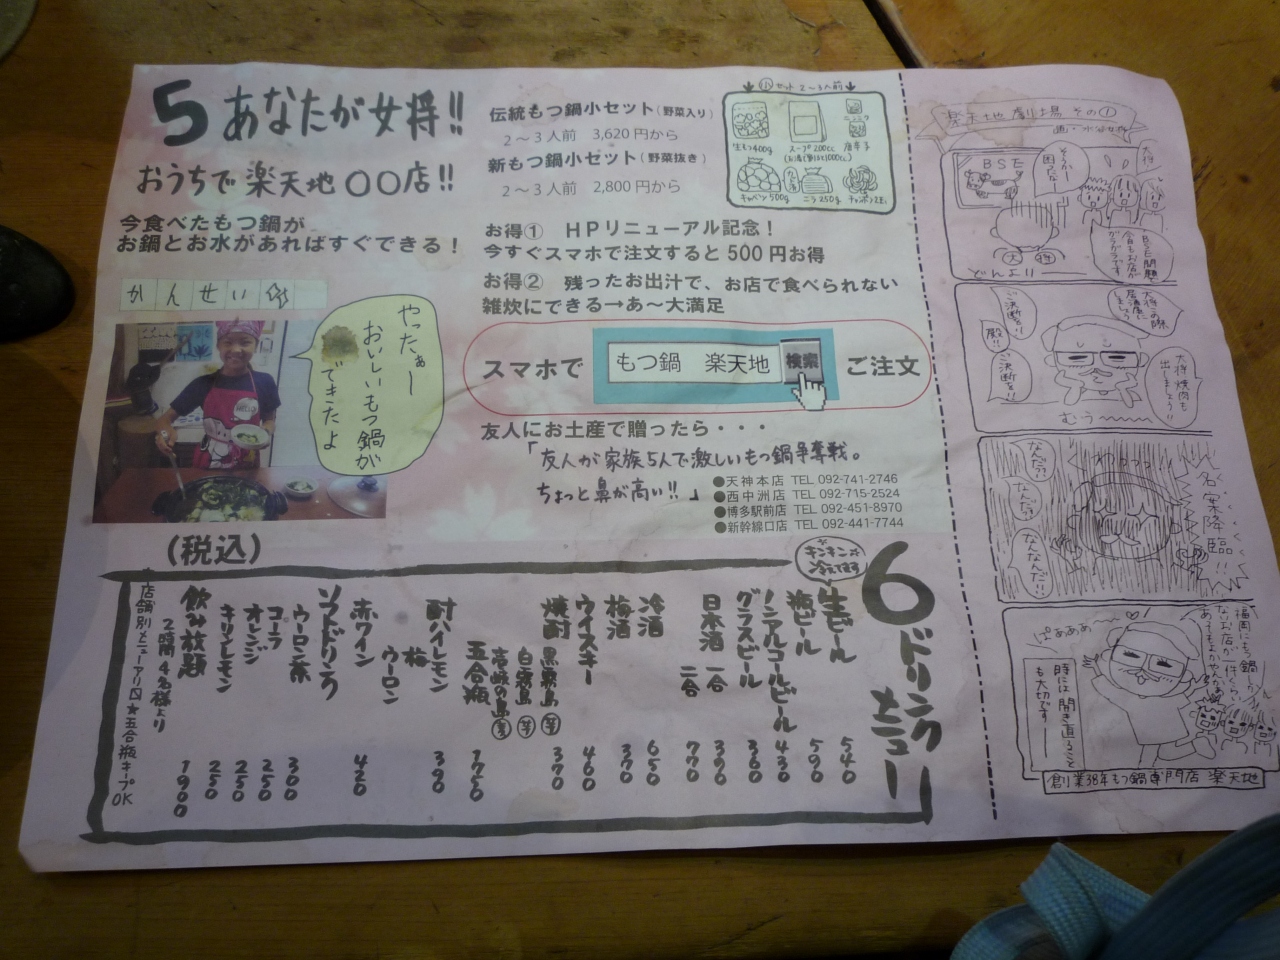 5 あなたが女将!!
おうちで楽天地〇〇店!!
今食べたもつ鍋が
お鍋とお水があればすぐできる！
かんせい
やったぁー
おいしいもつ鍋が
できたよ
伝統もつ鍋小セット(野菜入り)
2～3人前 3,620円から
新もつ鍋小セット(野菜抜き)
2～3人前 2,800円から
小セット 2～3人前
生もつ400g
スープ200cc
ニンニク
唐辛子
キャベツ500g
ニラ250g
チャンポン2玉
お得① HPリニューアル記念！
今すぐスマホで注文すると500円お得
お得② 残ったお出汁で、お店で食べられない
雑炊にできる→あ～大満足
スマホで もつ鍋 楽天地 検索 ご注文
友人にお土産で贈ったら・・・
「友人が家族5人で激しいもつ鍋争奪戦。
ちょっと鼻が高い!!」
●天神本店 TEL 092-741-2746
●西中洲店 TEL 092-715-2524
●博多駅前店 TEL 092-451-8970
●新幹線口店 TEL 092-441-7744
(税込)
6 ドリンクメニュー
キンキンに冷えてます
生ビール 540
瓶ビール 590
ノンアルコールビール 430
グラスビール 360
日本酒 一合 390
二合 770
冷酒 650
梅酒 370
ウイスキー 460
焼酎 黒霧島(芋) 370
白霧島(芋)
壱岐の島(麦)
五合瓶 1750
酎ハイレモン 390
梅
ウーロン
赤ワイン 420
ソフトドリンク
ウーロン茶 300
コーラ 250
オレンジ 250
キリンレモン 250
飲み放題 1900
2時間4名様より
★店舗別メニューアリ
★五合瓶キープOK
楽天地劇場 その①
BSE
大将
BSE問題で
今日もお店が
ガラガラです
どんより
大将この際
居酒屋に
しましょう
大将焼肉も
出しましょう!!
ご決断を!!
殿!!
ご決断を!!
むぅ～～
名案降臨!!
なんだ??
なんだ?
なんなんだ!!
福岡にもつ鍋しか
ないお店が一件くらい
あってもよかやんなぁ
ぱぁぁぁ～
時には開き直ること
も大切です――
創業38年もつ鍋専門店 楽天地